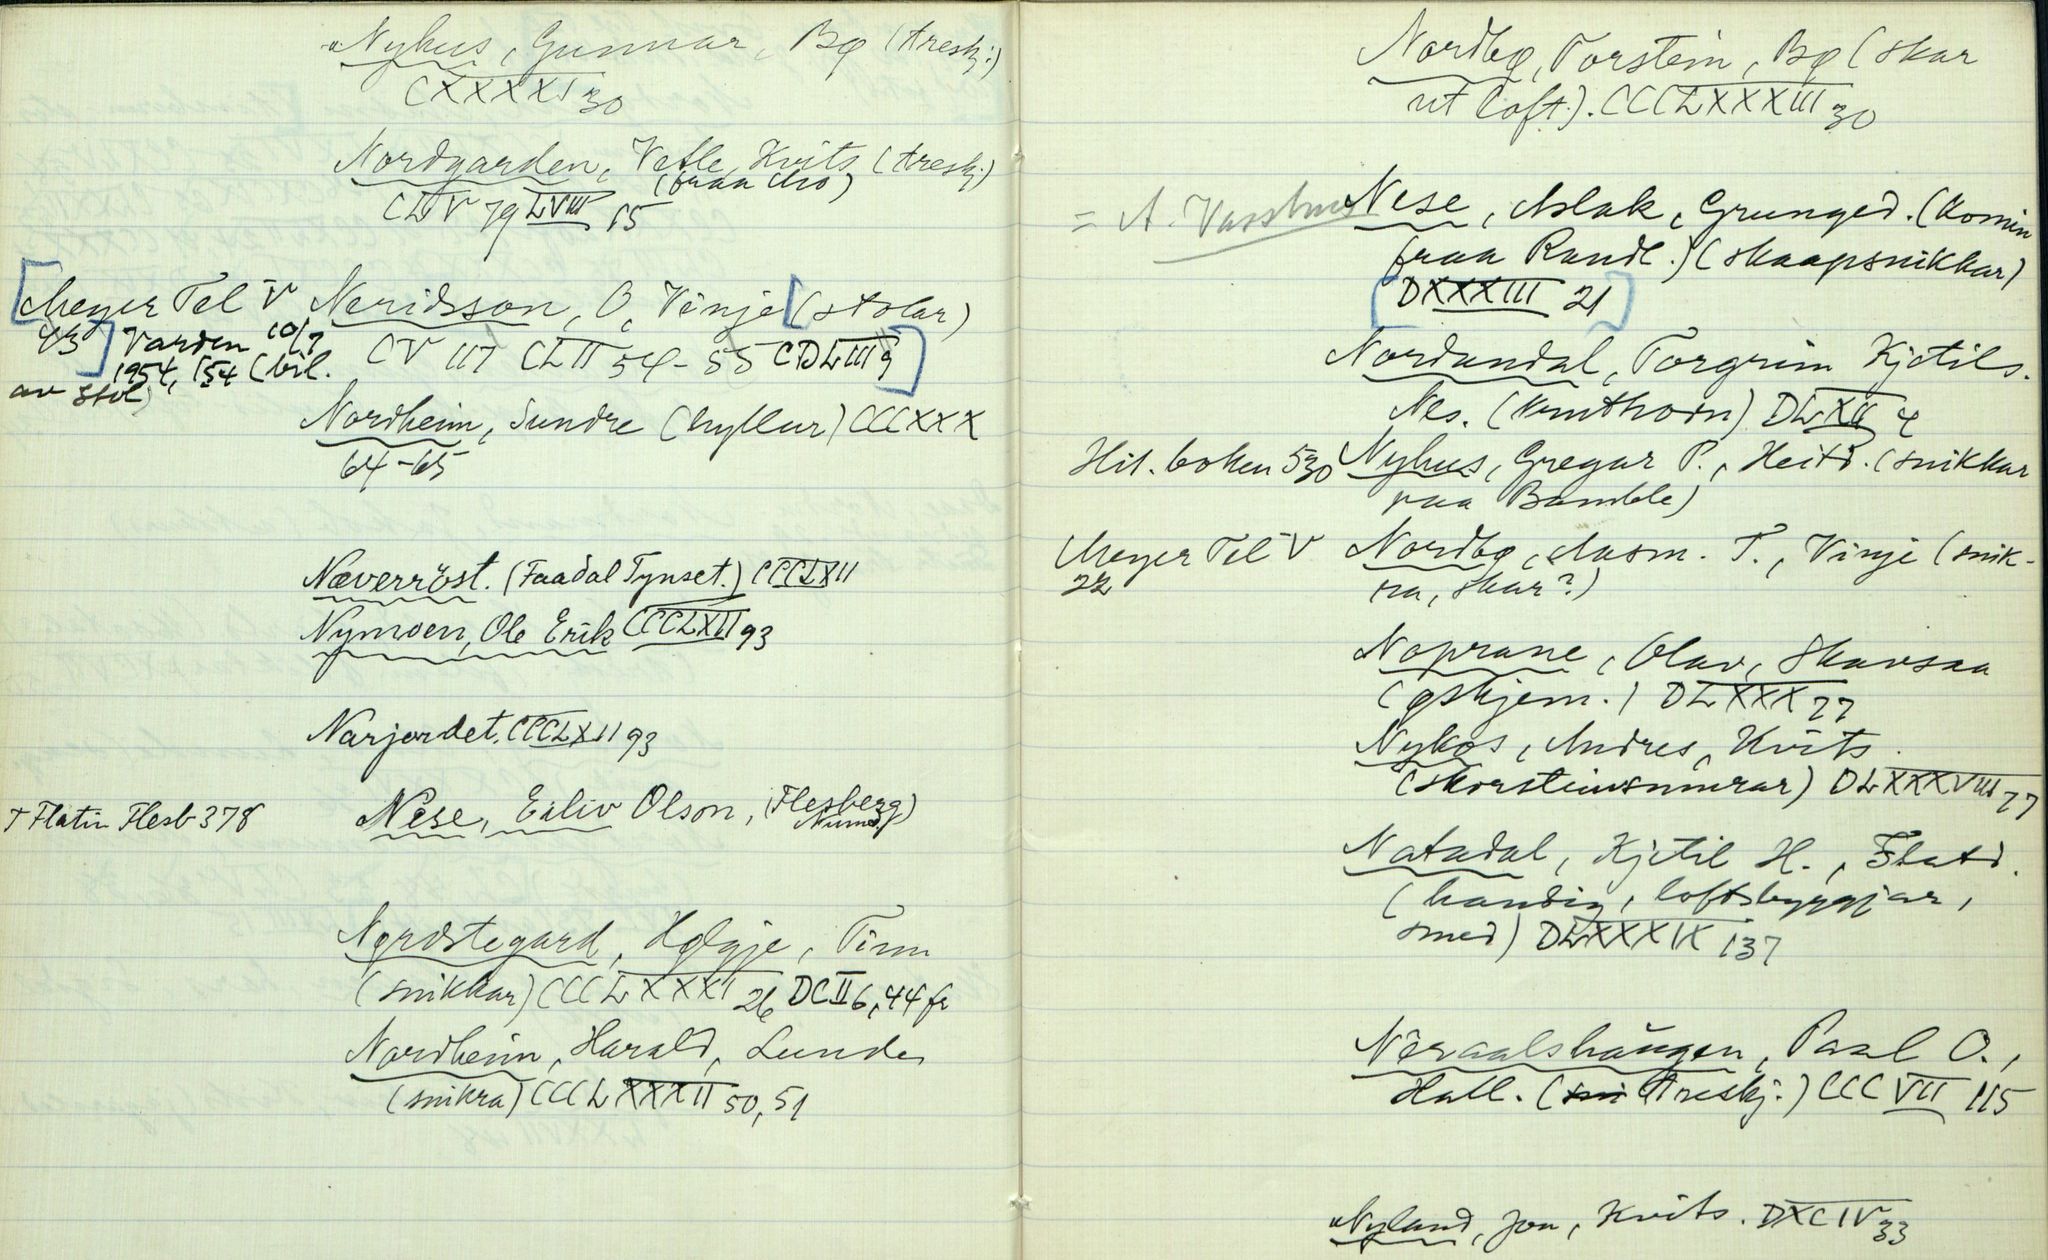 Nyhus, Gunnar, Bø (treskj.)
CXXXXI 30
Nordgarden, Vetle, Kvits. (treskj.)
(fraa Mo)
CLV 79 LVIII 15
[Meyer Tel V Neridsson, O, Vinje [(stolar)
43] Varden 10/7 CV 117 CLII 54-55 CDLIII 9]
1954, 154 (bil.
av stol)
Nordheim, Sundre (hyllur) CCCXXX
64-65
Næverröst. (Faadal Tynset.) CCCLXII
Nymoen, Ole Erik CCCLXII 93
Narjordet. CCCLXII 93
+ Flatin Flesb 378 Nese, Eiliv Olson, (Flesberg
Numed.)
Nørdstegard, Hølgje, Tinn
(snikkar) CCCLXXXI 26, DCII 6, 44 fr
Nordheim, Harald, Lunde,
(snikra) CCCLXXXII 50, 51
Nordbø, Torstein, Bø (skar
ut loft). CCCLXXXIII 30
= A. Vasshus Nese, Aslak, Grunged. (komin
fraa Randl.) (skaapsnikkar)
[DXXXIII 21]
Nordundal, Torgrim Kjetils.
Nes. (krutthorn) DLXII 4
Hit. boken 530 Nyhus, Gregar P., Heitd. (snikkar
paa Bamble)
Meyer Tel V Nordbø, Aasm. T., Vinje (snik-
22 ra, skar?)
Noprane, Olav, Skavsaa
(gskjem.) DLXXX 77
Nykos, Andres, Kvits.
(skorsteinsmurar) DLXXXVIII 77
Natadal, Kjetil H., Flatd.
(handig, loftsbyggjar,
smed) DLXXXIX 137
Nèraalshaugen, Paal O.,
Hall. (sni treskj.) CCCVII 115
Nyland, Jon, Kvits. DXCIV 33